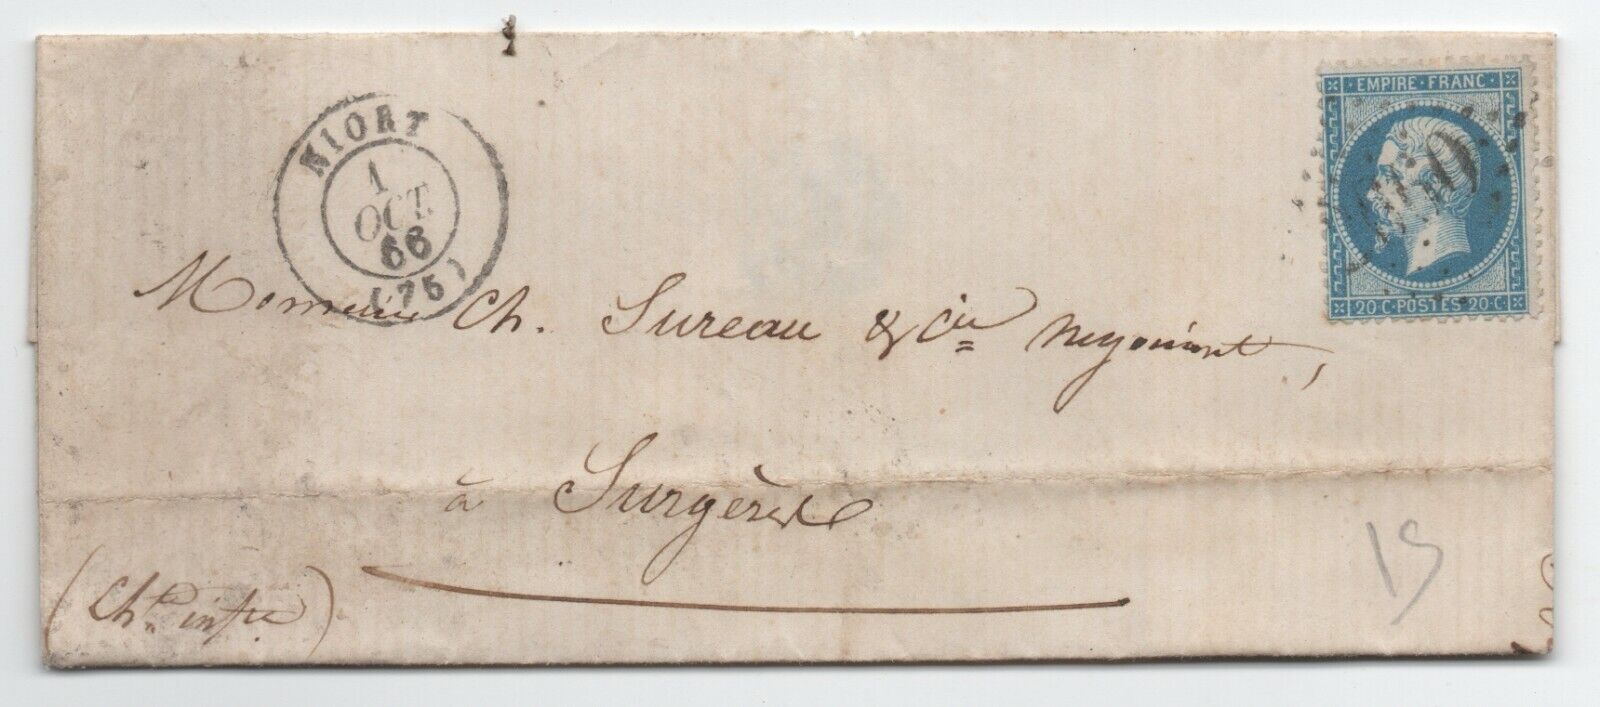 NIORT
1
OCT.
66
(75)
EMPIRE · FRANC
20 C · POSTES · 20 C
Monsieur Ch. Sureau & Cie négociant,
à Surgères
(Chte infre)
15